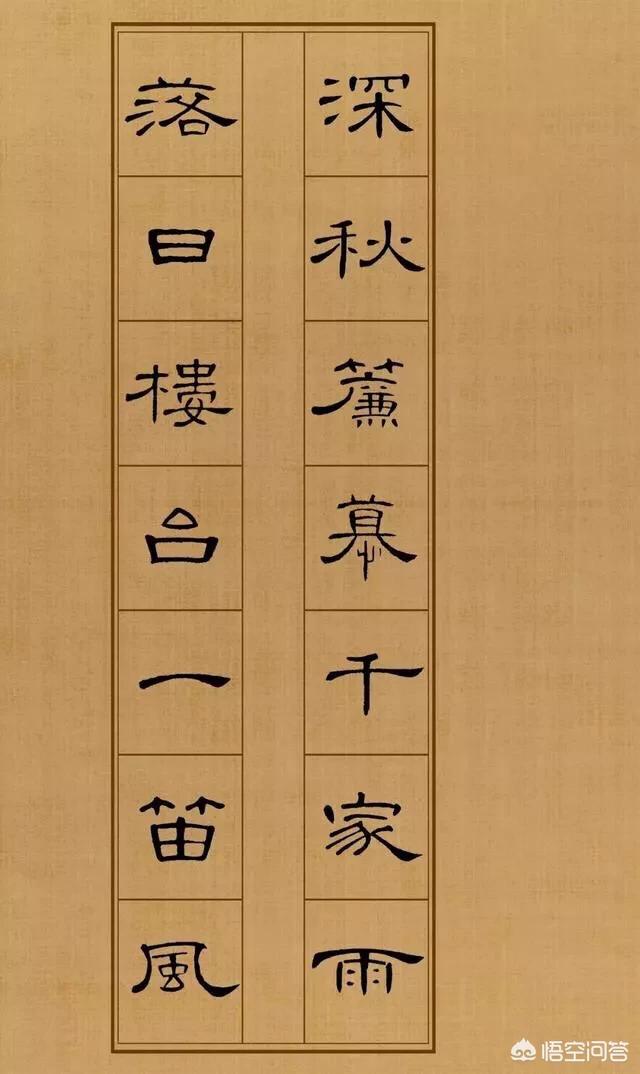 深秋簾慕千家雨
落日樓台一笛風
悟空问答